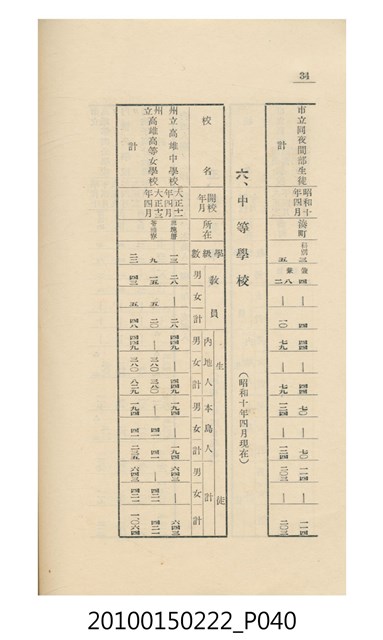 34
市立同夜間部生徒 昭和十年四月 湊町
計 五 — 一〇 七九 — 七九 一二四 — 一二四 二〇三 — 二〇三
六、中等學校 (昭和十年四月現在)
校名 開校年月 所在 學級數 教員 男 女 計 生徒 內地人 男 女 計 本島人 男 女 計 計 男 女 計
州立高雄中學校 大正十一年四月 三塊厝 一三 二八 — 二八 四四九 — 四四九 一九四 — 一九四 六四三 — 六四三
州立高雄高等女學校 大正十三年四月 苓雅寮 九 一五 五 二〇 — 三八〇 三八〇 — 四一 四一 — 四二一 四二一
計 二二 四三 五 四八 四四九 三八〇 八二九 一九四 四一 二三五 六四三 四二一 一、〇六四
20100150222_P040